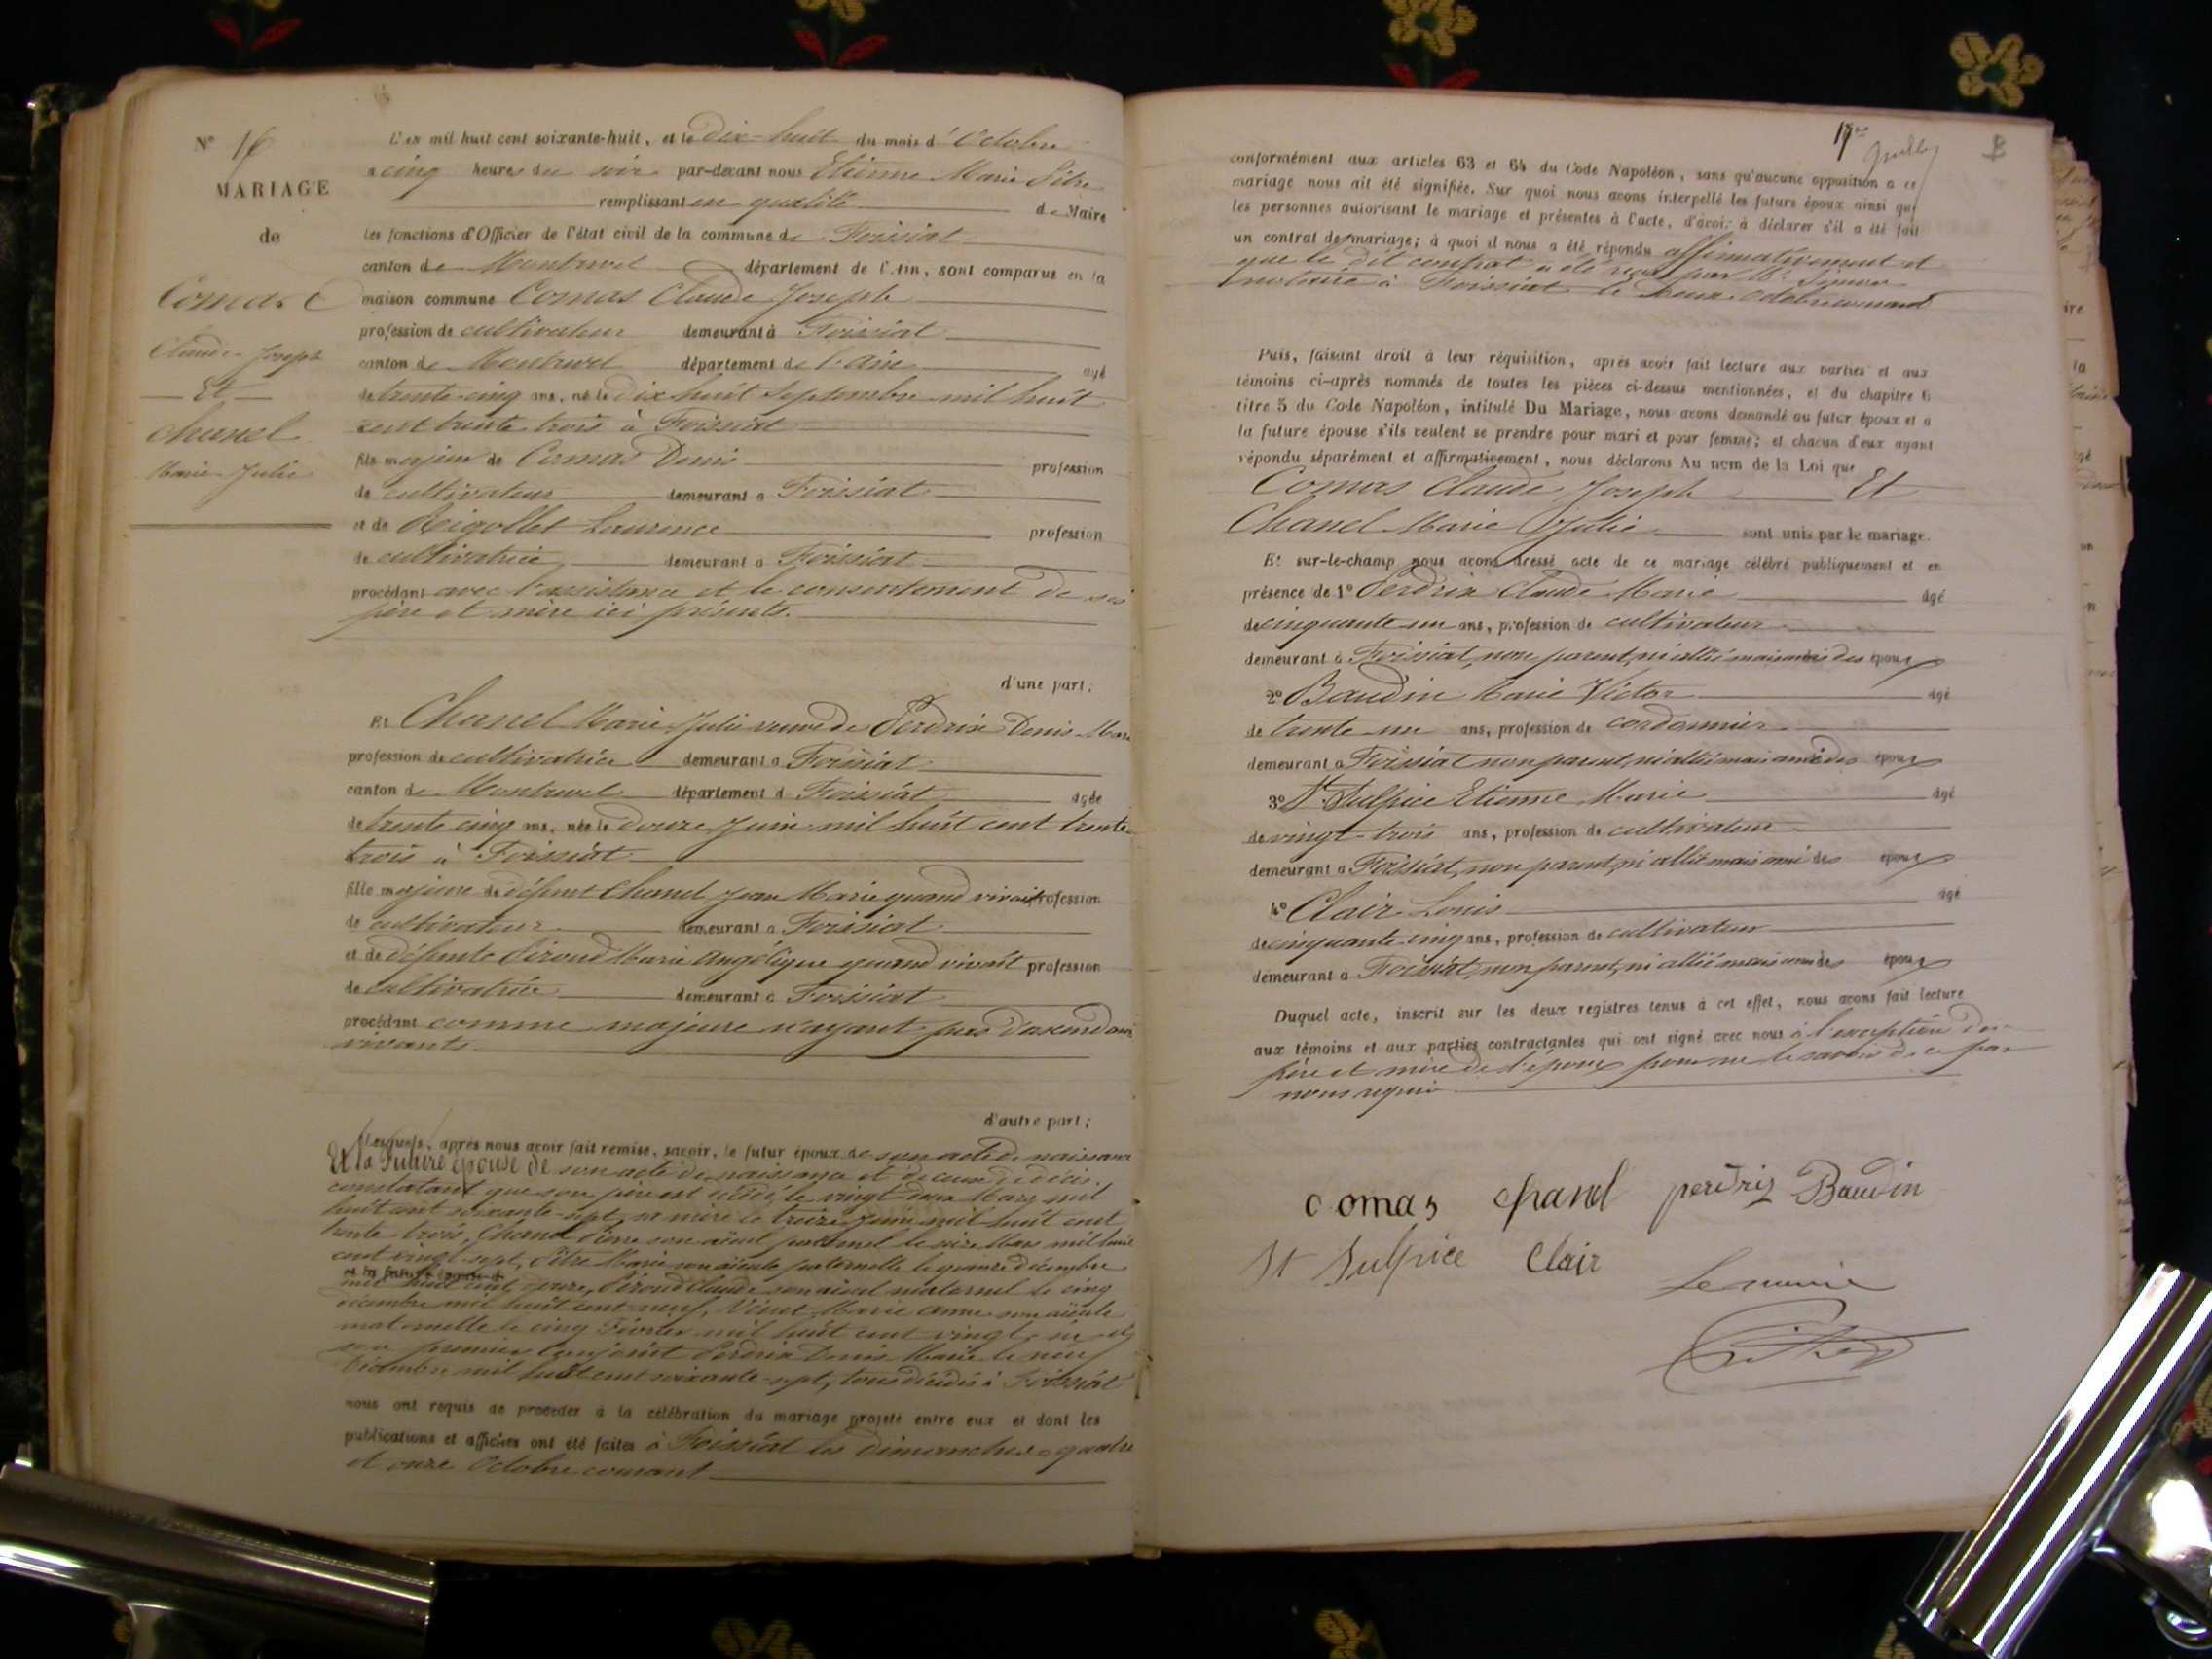 N° 16
MARIAGE
de
Comas
Claude-Joseph
Et
Chanel
Marie-Julie
L'an mil huit cent soixante-huit, et le dix-huit du mois d'Octobre
a cinq heures du soir par-devant nous Etienne Marie Pitre
remplissant en qualité de Maire
les fonctions d'Officier de l'état civil de la commune de Foissiat
canton de Montrevel département de l'Ain, sont comparus en la
maison commune Comas Claude Joseph
profession de cultivateur demeurant à Foissiat
canton de Montrevel département de l'ain agé
de trente-cinq ans, né le dix huit Septembre mil huit
cent trente trois à Foissiat
fils majeur de Comas Denis profession
de cultivateur demeurant a Foissiat
et de Rigollet Laurence profession
de cultivatrice demeurant a Foissiat
procédant avec l'assistance et le consentement de ses
père et mère ici présents.
d'une part;
Et Chanel Marie-Julie veuve de Perdrix Denis-Marie
profession de cultivatrice demeurant a Foissiat
canton de Montrevel département d Foissiat agée
de trente cinq ans, née le douze Juin mil huit cent trente
trois à Foissiat
fille majeure de défunt Chanel Jean Marie quand vivait profession
de cultivateur demeurant a Foissiat
et de défunte Piroud Marie Angélique quand vivait profession
de cultivatrice demeurant a Foissiat
procédant comme majeure n'ayant pas d'ascendans
vivants.
d'autre part;
Lesquels, après nous avoir fait remise, savoir, le futur époux de son acte de naissance
Et la Future épouse de son acte de naissance et de ceux de décès
constatant que son père est décédé le vingt deux Mars mil
huit cent soixante-sept, sa mère le treize Juin mil huit cent
trente trois, Chanel Pierre son aïeul paternel le Mars mil huit
cent vingt-sept, Pitre Marie son aïeule paternelle le quinze décembre
mil huit cent douze, Piroud Claude son aïeul maternel le cinq
décembre mil huit cent neuf, Vinet Marie Anne son aïeule
maternelle le cinq Février mil huit cent vingt et
son premier conjoint Perdrix Denis Marie le neuf
mil huit cent soixante-sept, tous décédés à Foissiat
nous ont requis de procéder à la célébration du mariage projeté entre eux et dont les
publications et affiches ont été faites à Foissiat les dimanches quatre
et onze Octobre courant
conformément aux articles 63 et 64 du Code Napoléon, sans qu'aucune opposition a ce
mariage nous ait été signifiée. Sur quoi nous avons interpellé les futurs époux ainsi que
les personnes autorisant le mariage et présentes à l'acte, d'avoir à déclarer s'il a été fait
un contrat de mariage; à quoi il nous a été répondu affirmativement et
que le dit contrat a été reçu par Me
notaire à Foissiat le deux Octobre courant
Puis, faisant droit à leur réquisition, après avoir fait lecture aux parties et aux
témoins ci-après nommés de toutes les pièces ci-dessus mentionnées, et du chapitre 6
titre 5 du Code Napoléon, intitulé Du Mariage, nous avons demandé au futur époux et a
la future épouse s'ils veulent se prendre pour mari et pour femme; et chacun d'eux ayant
répondu séparément et affirmativement, nous déclarons Au nom de la Loi que
Comas Claude Joseph Et
Chanel Marie Julie sont unis par le mariage.
Et sur-le-champ nous avons dressé acte de ce mariage célébré publiquement et en
présence de 1° Perdrix Claude Marie âgé
de cinquante un ans, profession de cultivateur
demeurant à Foissiat, non parent, ni allié mais ami des époux
2° Baudin Marie Victor agé
de trente un ans, profession de cordonnier
demeurant à Foissiat non parent, ni allié mais ami des époux
3° St Sulpice Etienne Marie âgé
de vingt-trois ans, profession de cultivateur
demeurant a Foissiat, non parent, ni allié mais ami des époux
4° Clair Louis âgé
de cinquante-cinq ans, profession de cultivateur
demeurant à Foissiat, non parent, ni allié mais ami des époux
Duquel acte, inscrit sur les deux registres tenus à cet effet, nous avons fait lecture
aux témoins et aux parties contractantes qui ont signé avec nous à l'exception des
père et mère de l'époux pour ne le savoir de ce par
nous requis
Comas Chanel perdrix Baudin
St Sulpice Clair
Le maire
Pitre